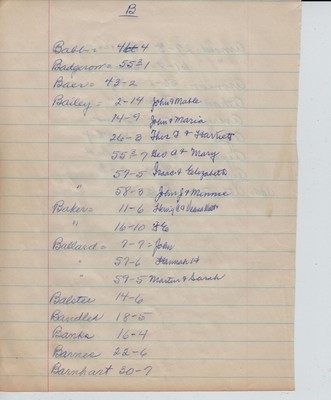 B
Babb = 464
Badgerow = 55-1
Baer = 43-2
Bailey = 2-14 John & Mable
14-9 John & Maria
26-8 Thos J & Harriett
55-7 Geo A & Mary
57-5 Isaac & Elizabeth
" 58-8 - John J & Minnie
Baker = 11-6
" 16-10
Ballard = 7-7 = John
" 57-6 Hannah H
59-5 Martin & Sarah
Balster 14-6
Bandles 18-5
Banks 16-4
Barnes 22-6
Barnhart 30-7